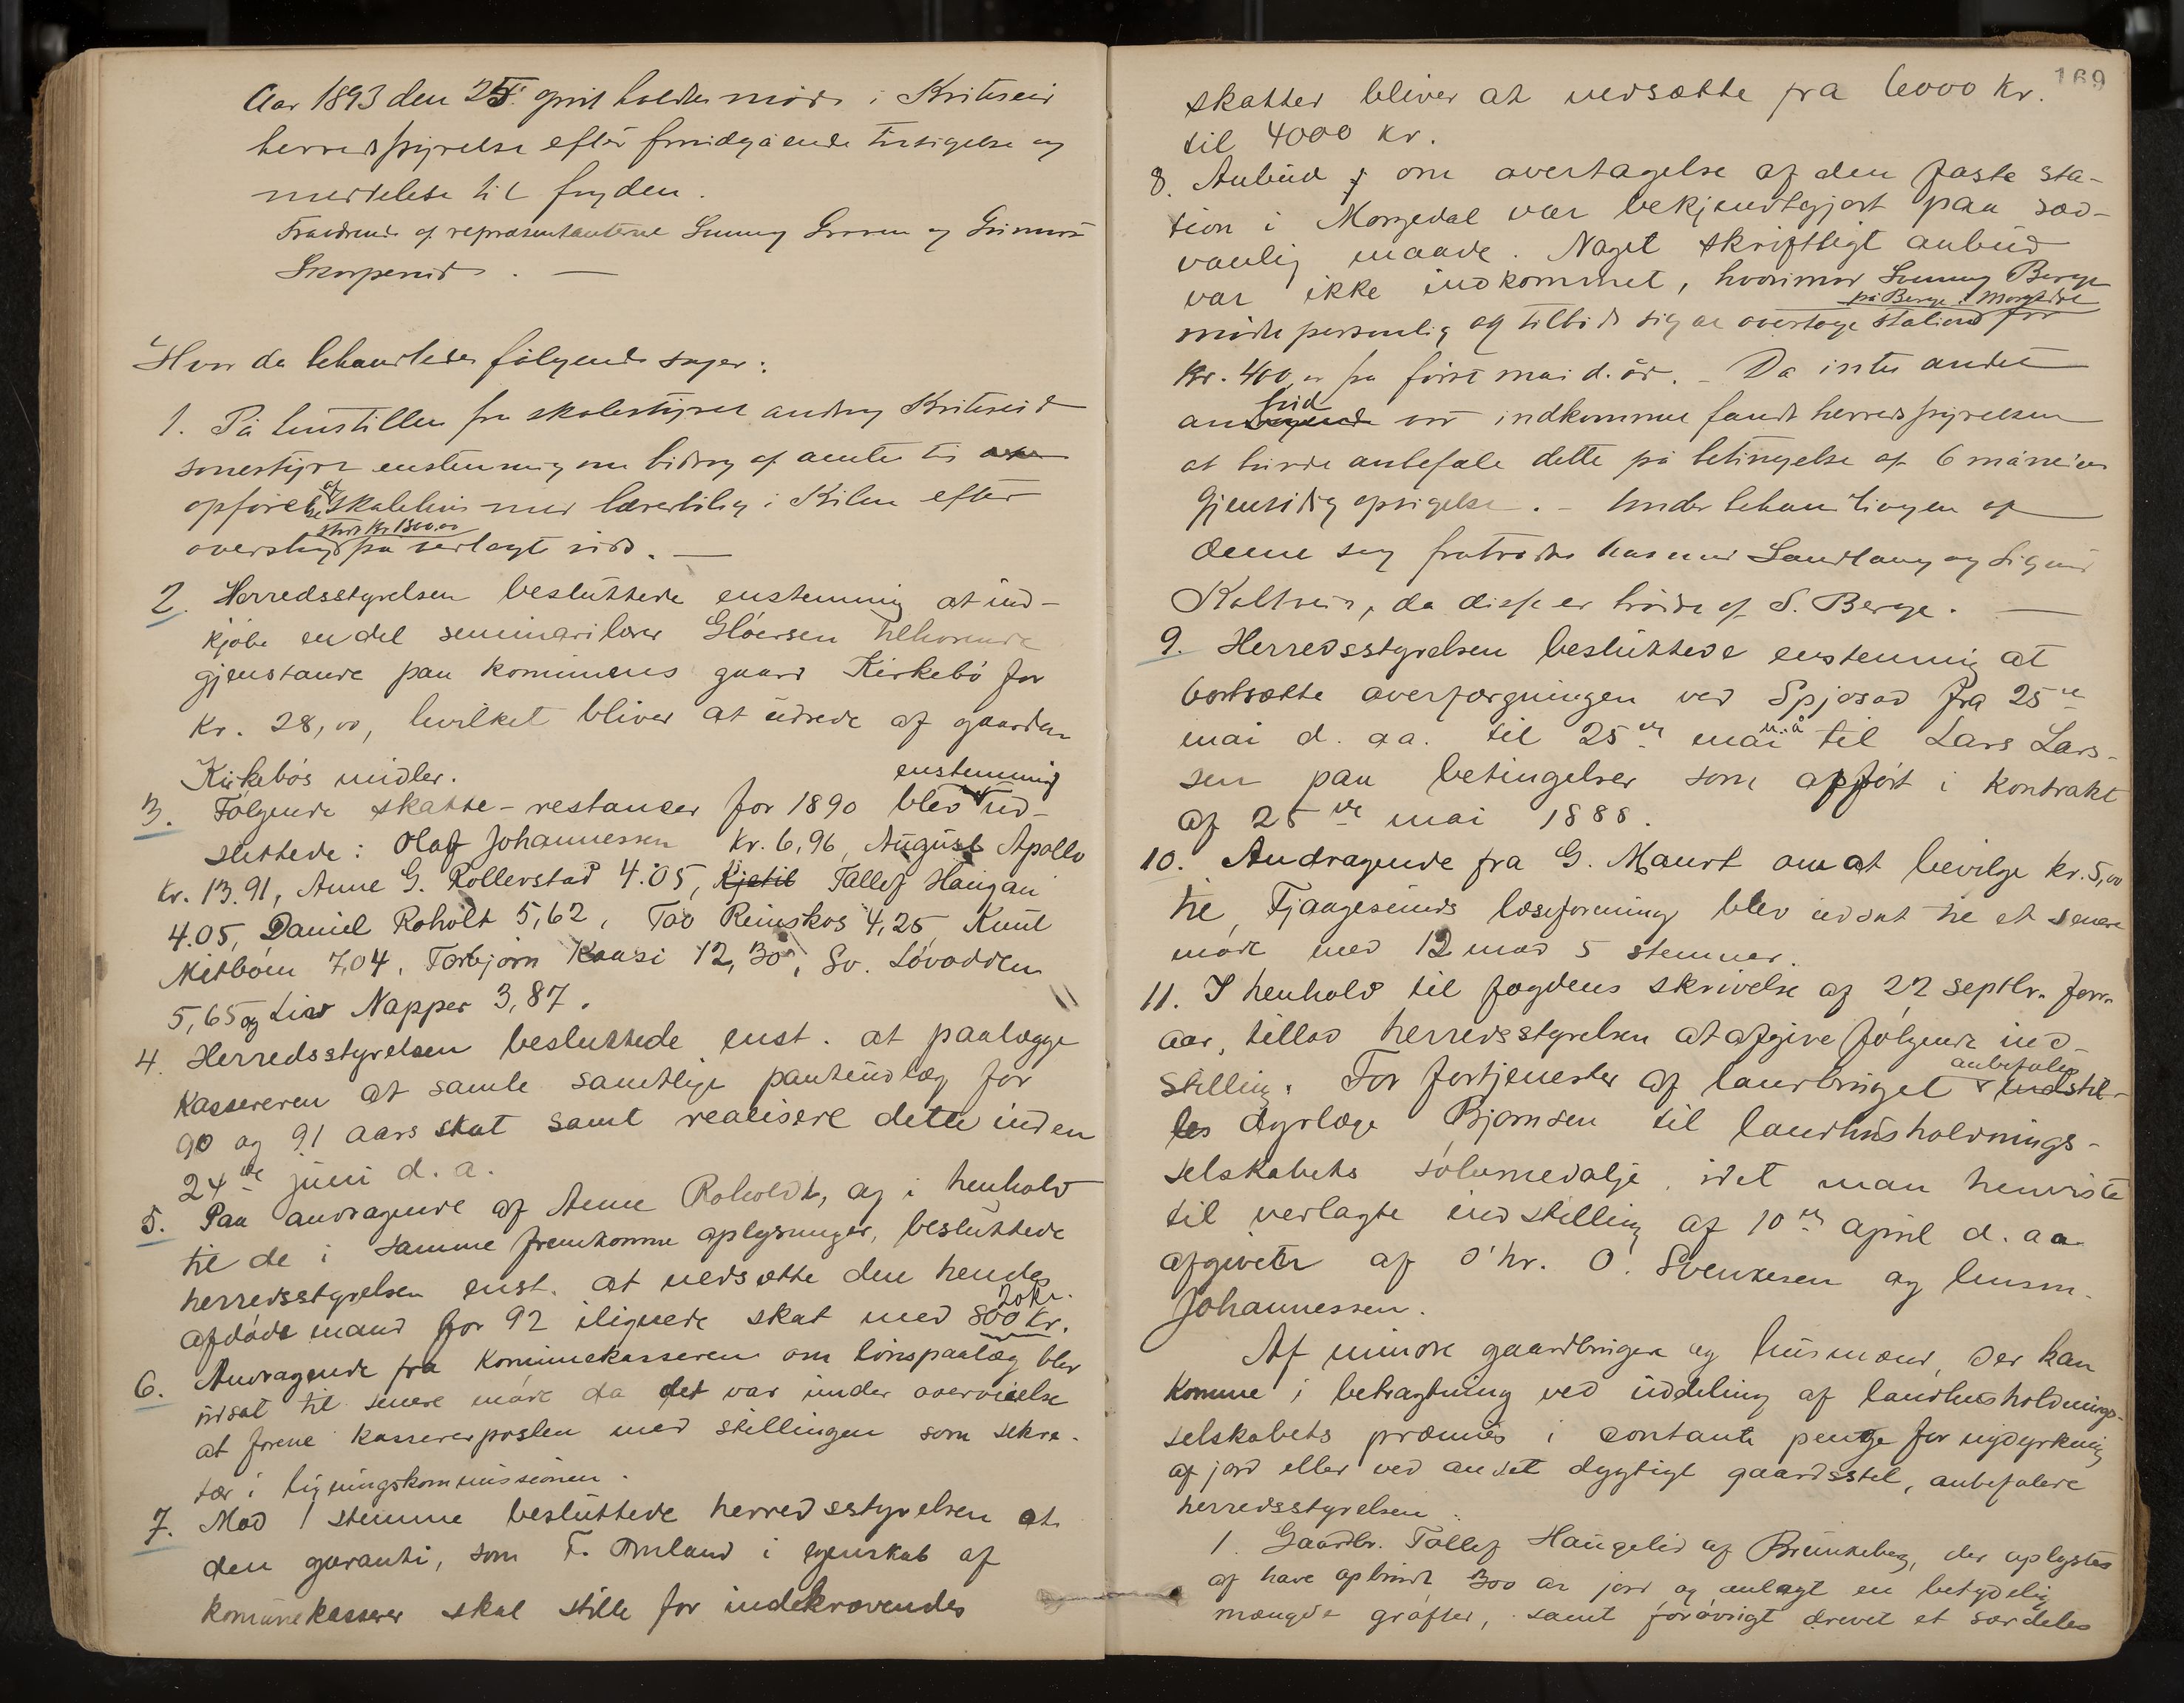 Aar 1893 den 25. april holdtes möde i Kviteseid
herredsstyrelse efter forudgående tilsigelse og
meddelelse til fogden.
Fraværende af repræsentanterne Sveinung Groven og Gunnar
Skarperud. —
Hvor da behandledes følgende sager:
1. På henstillen fra skolestyret androg Kviteseid
enstemmig om bidrag af amtet til
opförelse af skolehus med lærerbolig i Kilen efter
overslag stort kr 1300.00 fra
2. Herredsstyrelsen besluttede enstemmig at ind-
kjøbe en del seminarilærer Glöersen tilhørende
gjenstande paa kommunens gaard Kirkebö for
kr. 28,00, hvilket bliver at udrede af gaarden
Kirkebös midler.
3. Følgende skatte-restancer for 1890 blev enstemmig ud-
slettede: Olaf Johannessen kr. 6,96, August Apollo
kr. 13.91, Anne G. Rollevstad 4.05, Kjetil Tallef Haugan
4.05, Daniel Roholdt 5,62, Tao Reinskos 4,25 Knut
Mitböen 7,04, Torbjørn Kaasi 12,30, Sv. Lövodden
5,65 og Liv Napper 3,87.
4. Herredsstyrelsen besluttede enst. at paalægge
kassereren at samle samtlige pantudlæg for
90 og 91 aars skat samt realisere dette inden
24de juni d. a.
5. Paa andragende af Anne Roholdt, og i henhold
til de i samme fremkomne oplysninger, besluttede
herredsstyrelsen enst. at nedsætte den hendes
afdøde mand for 92 ilignede skat med 800 kr. 20 kr.
6. Andragende fra kommunekassereren om lönspaalæg blev
udsat til senere möde da det var under overveielse
at forene kassererposten med stillingen som sekre-
tær i ligningskommissionen.
7. Mod 1 stemme besluttede herredsstyrelsen at
den garanti, som F. Omland i egenskab af
kommunekasserer skal stille for indekrævendes
169
skatter bliver at nedsætte fra 6000 kr.
til 4000 kr.
8. Anbud om overtagelse af den faste sta-
tion i Morgedal var bekjendtgjort paa sæd-
vanlig maade. Noget skriftligt anbud
var ikke indkommet, hvorimod Sveinung Berge
på Berge i Morgedal
mödte personlig og tilböd sig at overtage stationen for
kr. 400,00 fra först mai d. år. — Da intet andet
anbud var indkommen fandt herredsstyrelsen
at burde anbefale dette på betingelse af 6 måneders
gjensidig opsigelse. — Under behandlingen af
denne sag fratrådte Rasmus Sandland og Sigurd
Kaltvein, da disse er brödre af S. Berge. —
9. Herredsstyrelsen besluttede enstemmig at
bortsætte overfærgningen ved Spjosod fra 25de
mai d. aa. til 25de mai n.å til Lars Lars-
sen paa betingelser som opfört i kontrakt
af 25de mai 1888.
10. Andragende fra G. Maurt om at bevilge kr. 5,00
til Fjaagesunds læseforening blev udsat til et senere
möde med 12 mod 5 stemmer.
11. I henhold til fogdens skrivelse af 22 septbr. forr.
aar, tillod herredsstyrelsen at afgive følgende ind-
stilling. For fortjenester af landbruget anbefales indstil-
les dyrlæge Bjørnsen til landhusholdnings-
selskabets sölvmedalje, idet man henviste
til vedlagte indstilling af 10de april d. aa
afgivet af d'hr. O. Svenkesen og husm.
Johannessen.
Af mindre gaardbrugere og husmænd, der kan
komme i betragtning ved uddeling af landhusholdnings-
selskabets præmies i contante penge for nydyrkning
af jord eller ved andet dygtigt gaardsstel, anbefalede
herredsstyrelsen:
1. Gaardbr. Tollef Haugelid af Brunkeberg, der oplystes
at have opbrudt 300 ar jord og anlagt en betydelig
mængde gröfter, samt forövrigt drevet et særdeles